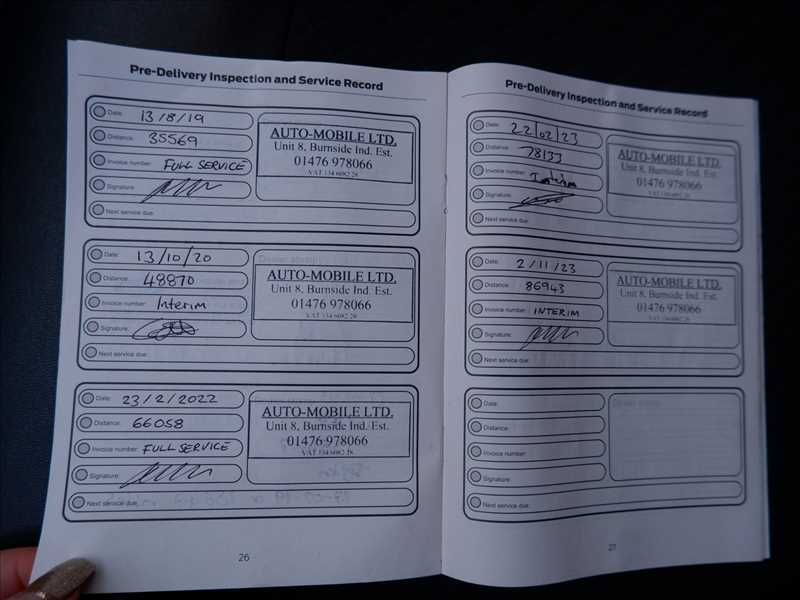 Pre-Delivery Inspection and Service Record
Date: 13/8/19
Distance: 35569
Invoice number: FULL SERVICE
Signature:
Next service due:
AUTO-MOBILE LTD.
Unit 8, Burnside Ind. Est.
01476 978066
VAT 134 6082 28
Date: 13/10/20
Distance: 48870
Invoice number: Interim
Signature:
Next service due:
AUTO-MOBILE LTD.
Unit 8, Burnside Ind. Est.
01476 978066
VAT 134 6082 28
Date: 23/2/2022
Distance: 66058
Invoice number: FULL SERVICE
Signature:
Next service due:
AUTO-MOBILE LTD.
Unit 8, Burnside Ind. Est.
01476 978066
VAT 134 6082 28
26
Pre-Delivery Inspection and Service Record
Date: 22/02/23
Distance: 78133
Invoice number: Interim
Signature:
Next service due:
AUTO-MOBILE LTD.
Unit 8, Burnside Ind. Est.
01476 978066
VAT 134 6082 28
Date: 2/11/23
Distance: 86943
Invoice number: INTERIM
Signature:
Next service due:
AUTO-MOBILE LTD.
Unit 8, Burnside Ind. Est.
01476 978066
VAT 134 6082 28
Date:
Distance:
Invoice number:
Signature:
Next service due:
27